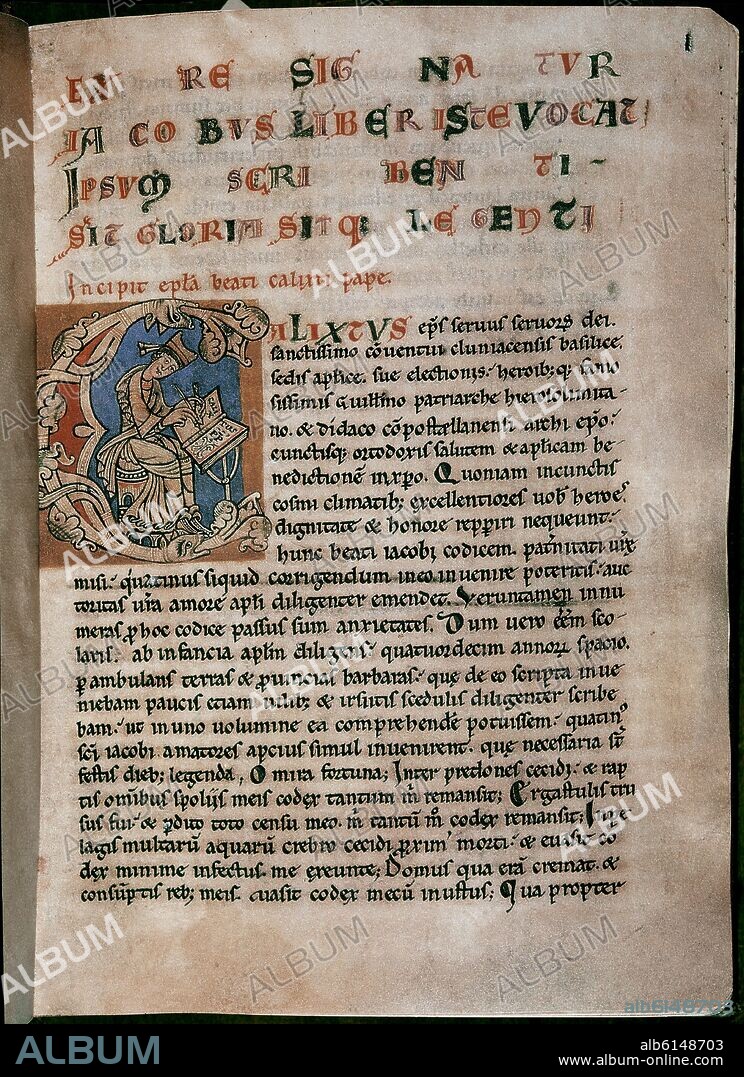 1
EX RE SIG NA TVR
IA CO BVS LIBER ISTE VOCAT
IPSVM SCRI BEN TI -
SIT GLORIA SITQ; LE GENTI
Incipit epła beati calixti pape.
CALIXTVS ep̄s seruus seruoꝝ dei.
sanctissimo cōuentui cluniacensis basilice
sedis ap̄lice. sue electionis. heroib;q; famo
sissimis Guill̄mo patriarche hierosolimita-
no. & didaco cōpostellanensi archi ep̄o.
cunctisq; ortodoxis salutem & ap̄licam be-
nedictionē in xp̄o. Quoniam incunctis
cosmi climatib; excellentiores uob̄ heroes
dignitate & honore repperiri nequeunt.
hunc beati iacobi codicem. pat̄nitati ur̄e
misi. quatinus siquid corrigendum in eo inuenire poteritis. auc
toritas ur̄a amore apl̄i diligenter emendet. Veruntamen innu
meras ꝓ hoc codice passus sum anxietates. Dum uero eēm sco-
laris. ab infancia apl̄m diligens. quatuordecim annoꝝ spacio.
ꝑambulans terras & ꝓuincias barbaras. que de eo scripta inue
niebam paucis etiam uilib; & irsutis scedulis diligenter scribe
bam. ut in uno uolumine ea comprehendē potuissem. quatin᷒
sc̄i iacobi amatores apcius simul inuenirent. que necessaria st̄
festis dieb; legenda, O mira fortuna; Inter predones cecidi. & rap
tis om̄ibus spolijs meis codex tantum m̄ remansit; Ergastulis tru
sus fui. & ꝑdito toto censu meo. m̄ tantū m̊ codex remansit; In pe
lagis multarū aquarū crebro cecidi ꝓxim᷒ morti. & euasit co
dex minime infectus. me exeunte; Domus qua erā cremat᷒. &
consūptis reb; meis. euasit codex mecū inustus; Qua propter
ALBUM
alb6148703
www.album-online.com